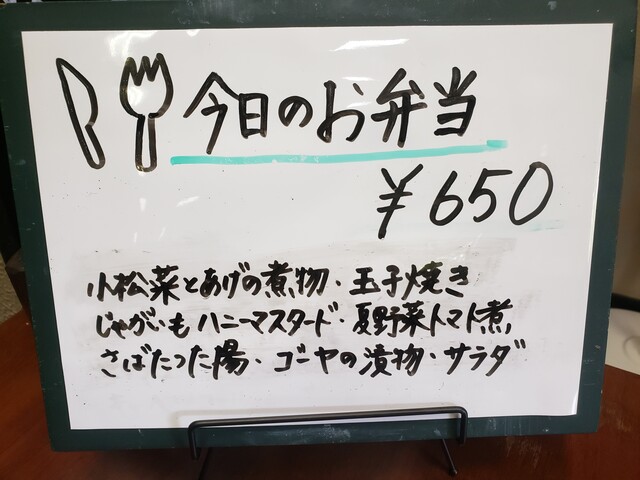 今日のお弁当
¥650
小松菜とあげの煮物・玉子焼き
じゃがいもハニーマスタード・夏野菜トマト煮,
さばたつた揚・ゴーヤの漬物・サラダ